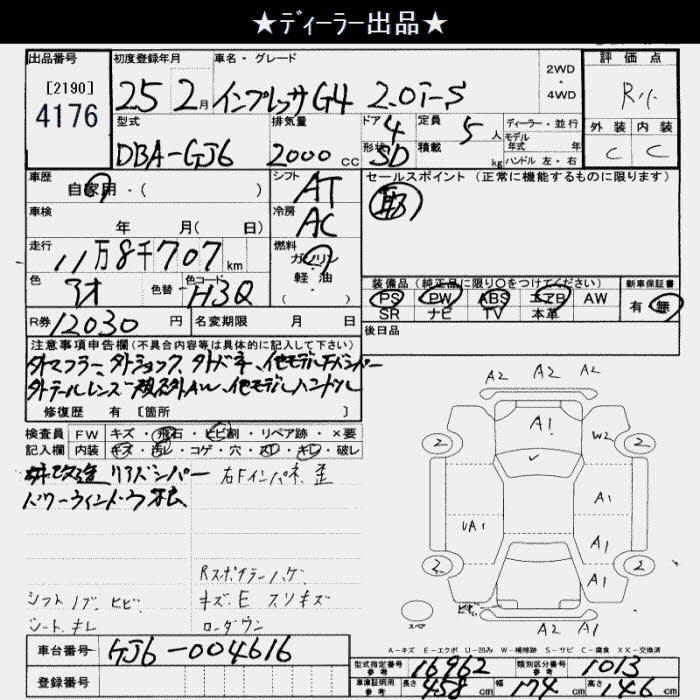 ★ディーラー出品★
出品番号
[2190]
4176
初度登録年月
25 2月
車名・グレード
インプレッサG4 2.0i-S
2WD
・
4WD
評価点
R
外装 内装
C C
型式
DBA-GJ6
排気量
2000 cc
ドア 4
形状 SD
定員 5 人
積載 kg
ディーラー・並行
モデル
年式 年
ハンドル 左・右
車歴
自家用・( )
シフト AT
車検
年 月( 日)
冷房 AC
走行
11万8千707 km
燃料
ガソリン
軽・油
( )
色
色替
色コード H3Q
R券 12030 円
名変期限 月 日
セールスポイント (正常に機能するものに限ります)
装備品 (純正品に限り〇をつけてください)
PS PW ABS エアB AW
SR ナビ TV 本革
新車保証書
有 ・ 無
後日品
注意事項申告欄(不具合内容等は具体的に記入して下さい)
外マフラー、外ショック、外バネ、他モデルFバンパー
外テールレンズ 他モデルハンドル
修復歴 有 [箇所 ]
検査員 FW キズ・飛石・ヒビ割・リペア跡・×要
記入欄 内装 キズ・汚レ・コゲ・穴・スレ・キレ・破レ
改造 リアバンパー
右Fインパネ 歪
パワーウィンドウ
Rスポイラーハゲ
シフトノブ ヒビ
キズ.E スリキズ
シート キレ
ローダウン
A2 A2 A2
A1
2 2
W2
A1
UA1
A1
A1
2 2
スペア
ヒビ
A2 A1
A-キズ E-エクボ U-凹み W-補修跡 S-サビ C-腐食 XX-交換済
車台番号 GJ6-004616
登録番号
型式指定番号
参考
16962
類別区分番号
参考
1013
車庫証明用
参考
長さ 458 cm
幅 174 cm
高さ 146 cm